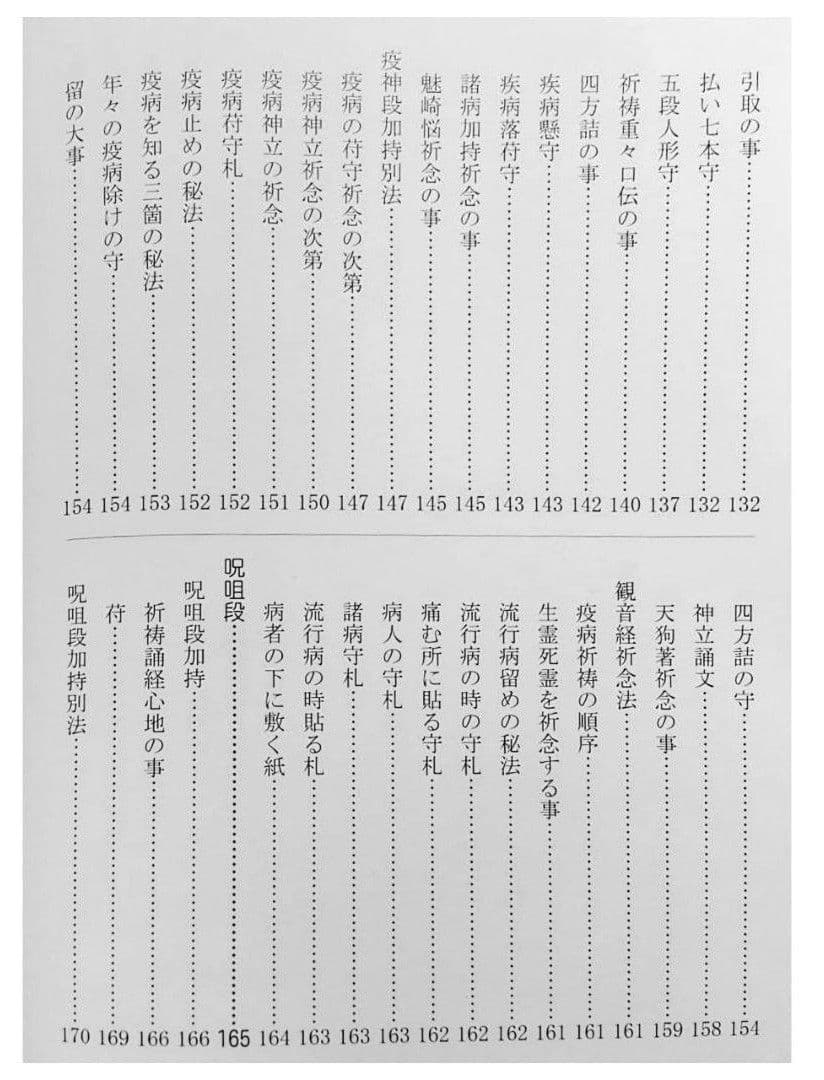 引取の事……………132
払い七本守……………132
五段人形守……………137
祈祷重々口伝の事……………140
四方詰の事……………142
疾病懸守……………143
疾病落苻守……………143
諸病加持祈念の事……………145
魅崎悩祈念の事……………145
疫神段加持別法……………147
疫病の苻守祈念の次第……………147
疫病神立祈念の次第……………150
疫病神立の祈念……………151
疫病苻守札……………152
疫病止めの秘法……………152
疫病を知る三箇の秘法……………153
年々の疫病除けの守……………154
留の大事……………154
四方詰の守……………154
神立誦文……………158
天狗著祈念の事……………159
観音経祈念法……………161
疫病祈祷の順序……………161
生霊死霊を祈念する事……………161
流行病留めの秘法……………162
流行病の時の守札……………162
痛む所に貼る守札……………162
病人の守札……………163
諸病守札……………163
流行病の時貼る札……………163
病者の下に敷く紙……………164
呪咀段……………165
呪咀段加持……………166
祈祷誦経心地の事……………166
苻……………169
呪咀段加持別法……………170